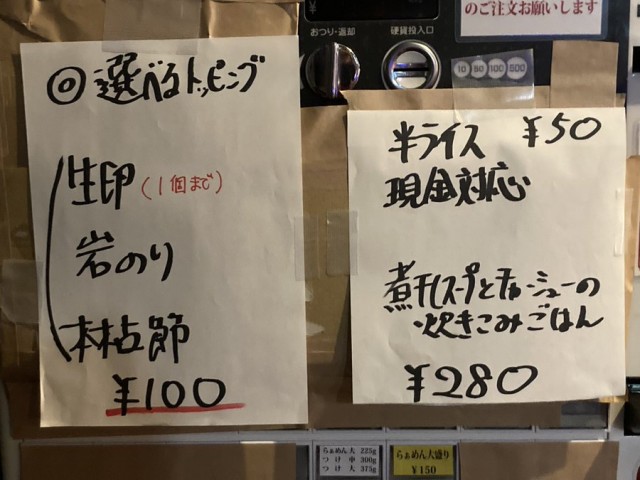 のご注文お願いします
¥
おつり・返却
硬貨投入口
10 50 100 500
◎選べるトッピング
生印(1個まで)
岩のり
本枯節
¥100
半ライス ¥50
現金対応
煮干しスープとチャーシューの
炊きこみごはん
¥280
らぁめん 大 225g
つけ 中 300g
つけ 大 375g
らぁめん大盛り
¥150